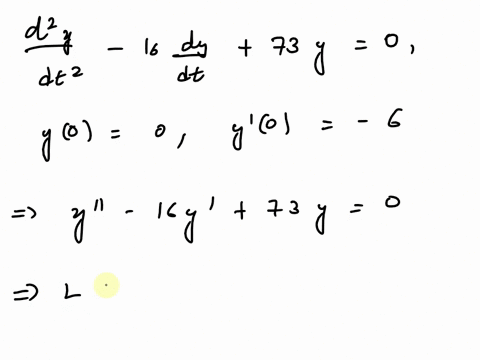 d²y/dt² - 16 dy/dt + 73 y = 0,
y(0) = 0, y'(0) = - 6
=> y" - 16y' + 73 y = 0
=> L